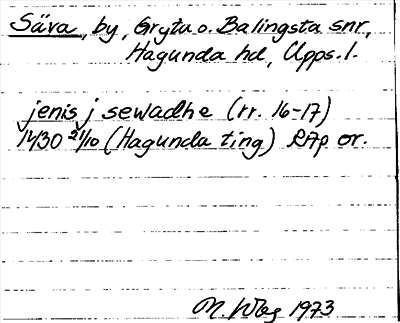 Säva, by, Gryta o. Balingsta snr,
Hagunda hd, Upps. l.
jenis j sewadhe (rr. 16-17)
1430 21/10 (Hagunda ting) RAp or.
M. Wag 1973